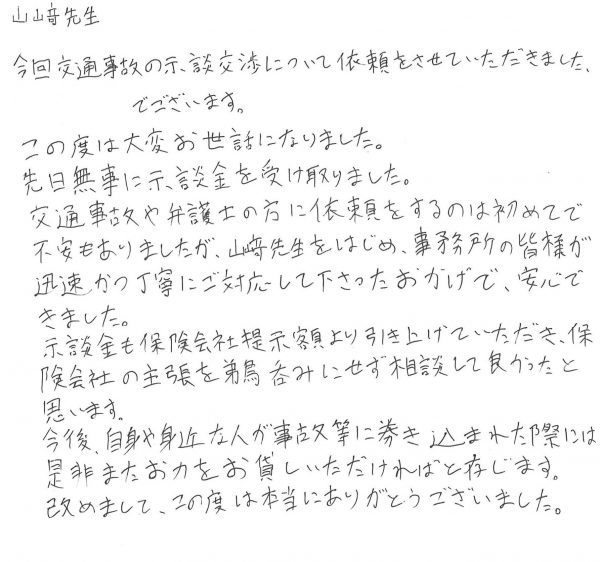 山﨑先生
今回交通事故の示談交渉について依頼をさせていただきました、
でございます。
この度は大変お世話になりました。
先日無事に示談金を受け取りました。
交通事故や弁護士の方に依頼をするのは初めてで
不安もありましたが、山﨑先生をはじめ、事務所の皆様が
迅速かつ丁寧にご対応して下さったおかげで、安心で
きました。
示談金も保険会社提示額より引き上げていただき、保
険会社の主張を鵜呑みにせず相談して良かったと
思います。
今後、自身や身近な人が事故等に巻き込まれた際には
是非またお力をお貸しいただければと存じます。
改めまして、この度は本当にありがとうございました。